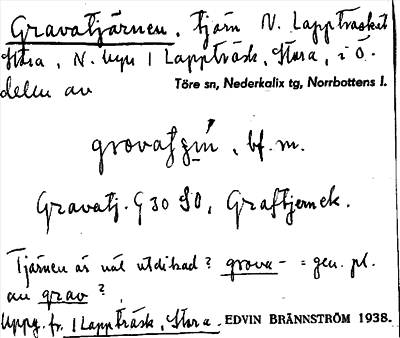 Gravatjärnen, tjärn N. Lappträsket
Stora, N. byn 1 Lappträsk, Stora, i Ö.
delen av
Töre sn, Nederkalix tg, Norrbottens l.
bf. m.
Gravatj. G 30 SO, Graftjernek.
Tjärnen är väl utdikad? grova- = gen. pl.
av grav?
Uppg. fr. 1 Lappträsk, Stora. EDVIN BRÄNNSTRÖM 1938.